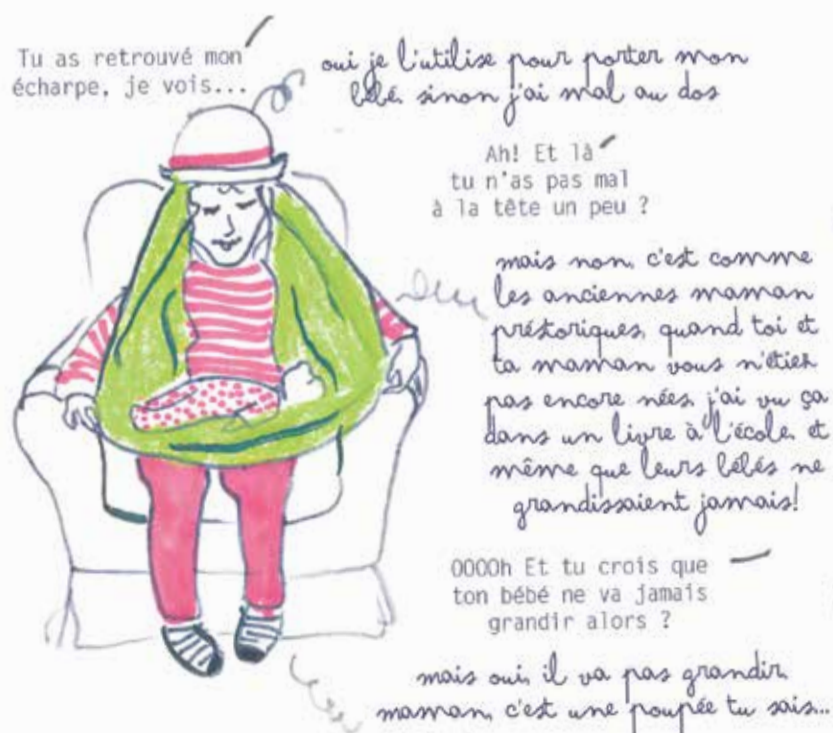 Tu as retrouvé mon
écharpe, je vois...
oui je l'utilise pour porter mon
bébé. sinon j'ai mal au dos
Ah! Et là
tu n'as pas mal
à la tête un peu ?
mais non, c'est comme
les anciennes maman
préstoriques, quand toi et
ta maman vous n'étiez
pas encore nées, j'ai vu ça
dans un livre à l'école. et
même que leurs bébés ne
grandissaient jamais!
OOOOh Et tu crois que
ton bébé ne va jamais
grandir alors ?
mais oui, il va pas grandir,
maman, c'est une poupée tu sais...